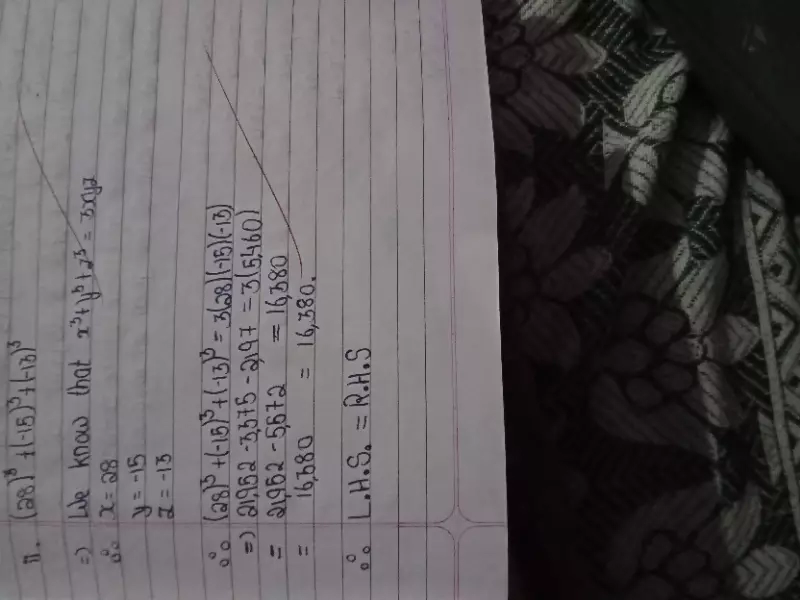 ii. (28)³ + (-15)³ + (-13)³
=) We know that x³ + y³ + z³ = 3xyz
∴ x = 28
y = -15
z = -13
∴ (28)³ + (-15)³ + (-13)³ = 3(28)(-15)(-13)
=) 21,952 - 3,375 - 2,197 = 3(5,460)
= 21,952 - 5,572 = 16,380
= 16,380 = 16,380.
∴ L.H.S. = R.H.S